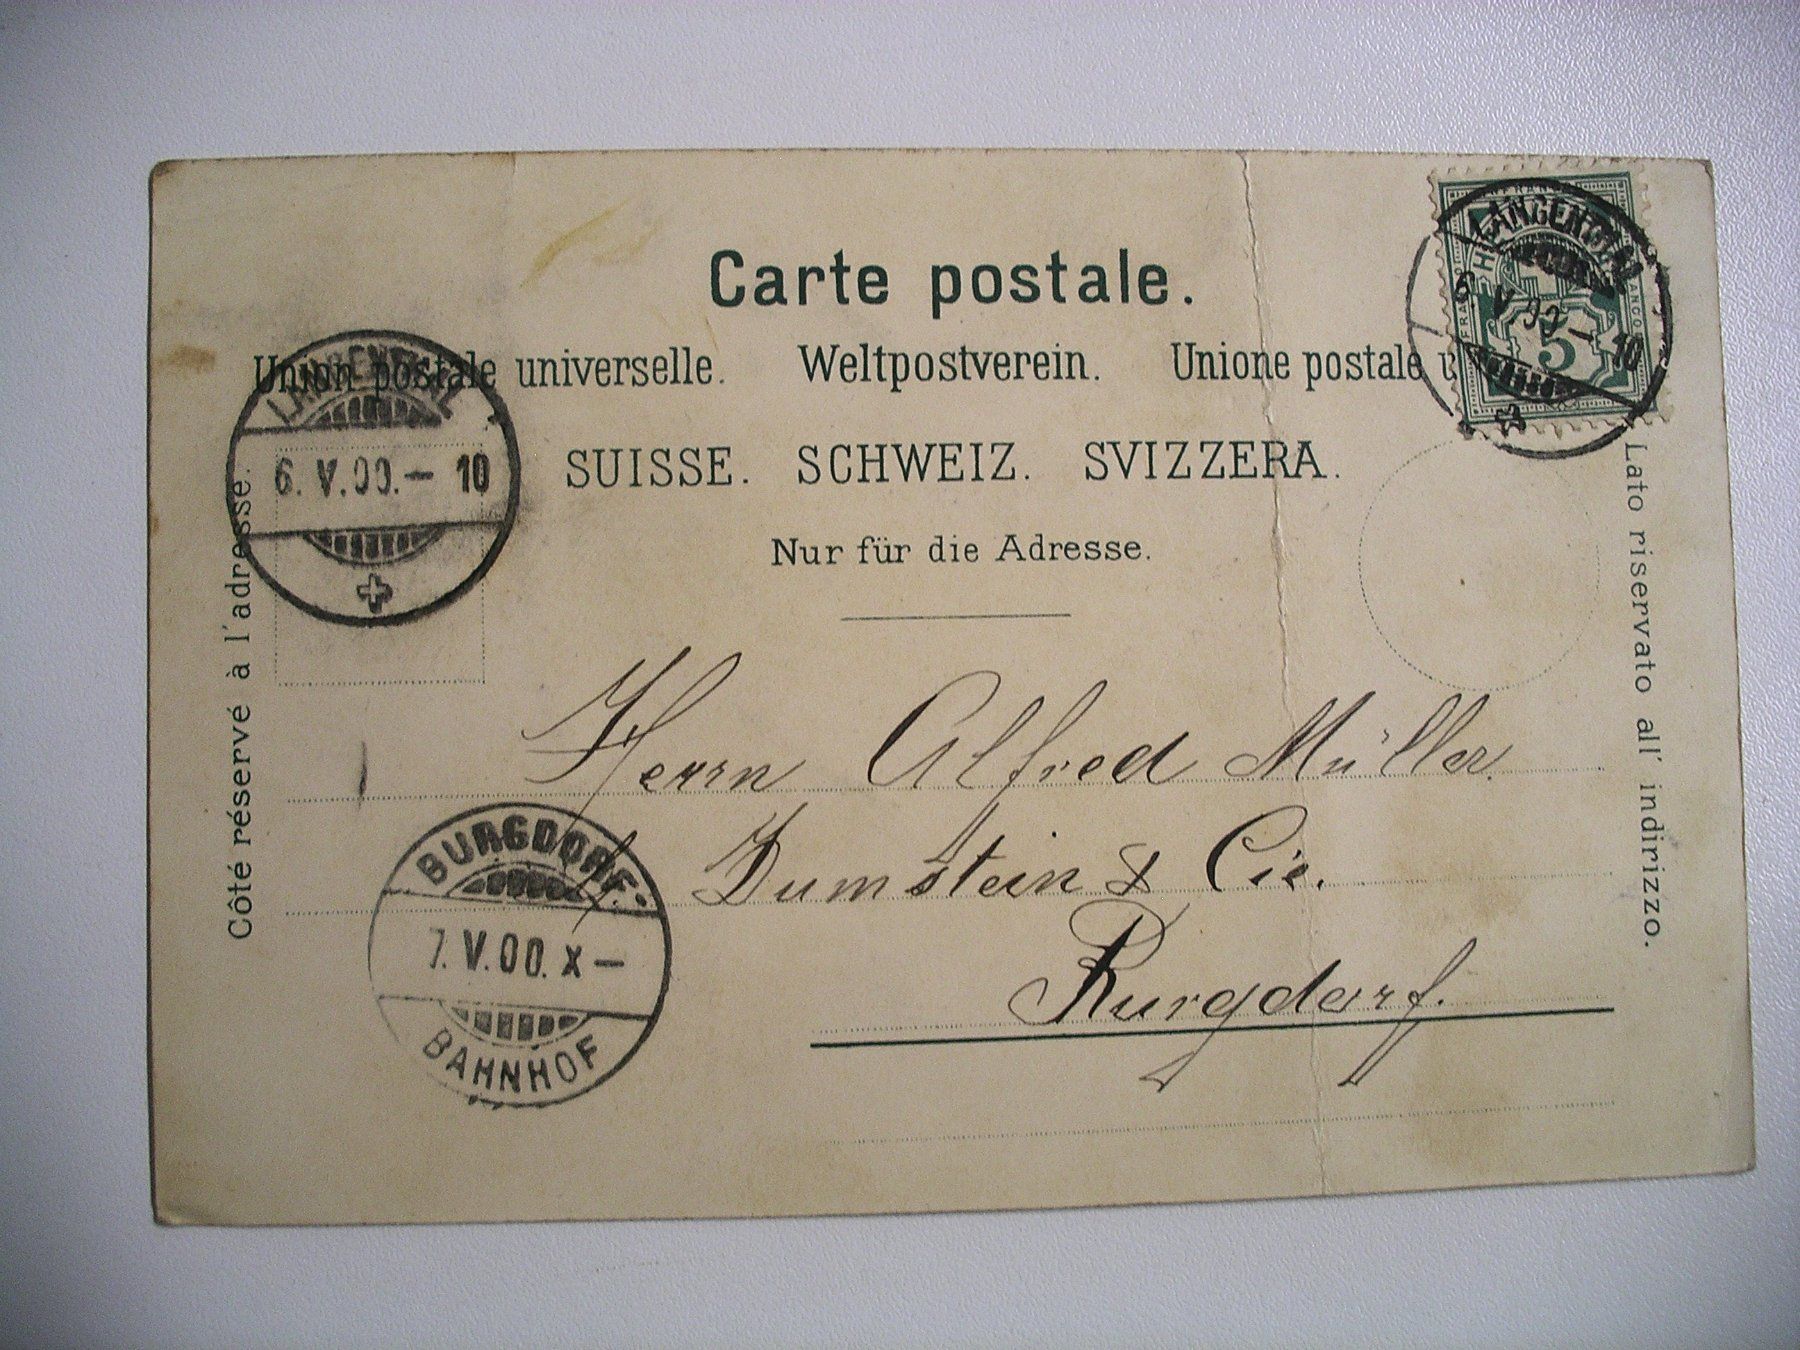 Carte postale.
Union postale universelle. Weltpostverein. Unione postale u
SUISSE. SCHWEIZ. SVIZZERA.
Nur für die Adresse.
Côté réservé à l'adresse.
Lato riservato all' indirizzo.
LANGENTHAL
6. V. 00. – 10
FRANCO
5
LANGENTHAL
6. V. 00. – 10
Herrn Alfred Müller.
Dumstein & Cie.
Burgdorf.
BURGDORF.
7. V. 00. X –
BAHNHOF